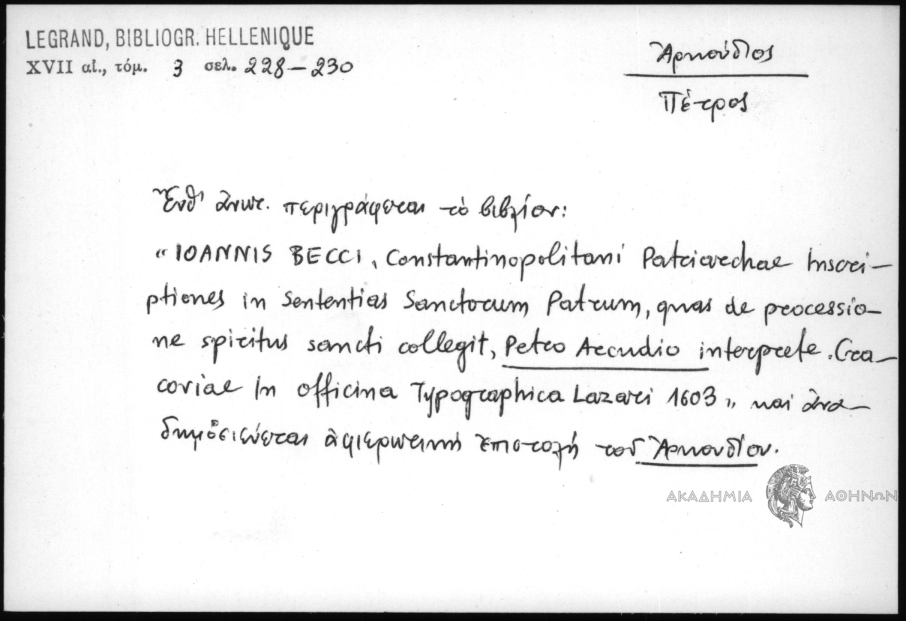 LEGRAND, BIBLIOGR. HELLENIQUE
XVII αἰ., τόμ. 3 σελ. 228–230
Ἀρκούδιος
Πέτρος
Ἔνθ' ἀνωτ. περιγράφεται τὸ βιβλίον:
"IOANNIS BECCI, Constantinopolitani Patriarchae Inscri-
ptiones in Sententias Sanctorum Patrum, quas de processio-
ne spiritus sancti collegit, Petro Arcudio interprete. Cra-
coviae In officina Typographica Lazari 1603" καὶ ἀνα-
δημοσιεύεται ἀφιερωτικὴ ἐπιστολὴ τοῦ Ἀρκουδίου.
ΑΚΑΔΗΜΙΑ ΑΘΗΝΩΝ